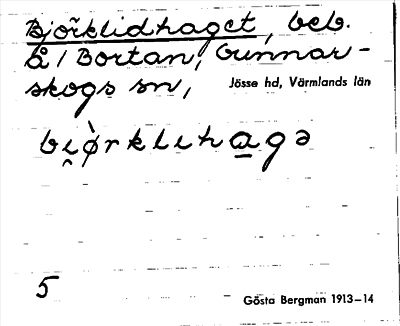 Björklidhaget, beb.
å / Bortan, Gunnar-
skogs sn, Jösse hd, Värmlands län
bi̯ø̀rklihagə
5
Gösta Bergman 1913–14